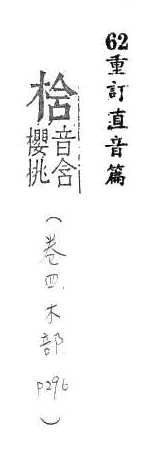 62重訂直音篇
㭘音含櫻桃
(卷四.木部 p296)